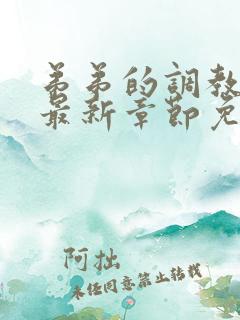 弟弟的調教
最新章節免
阿拙
未经同意禁止转载